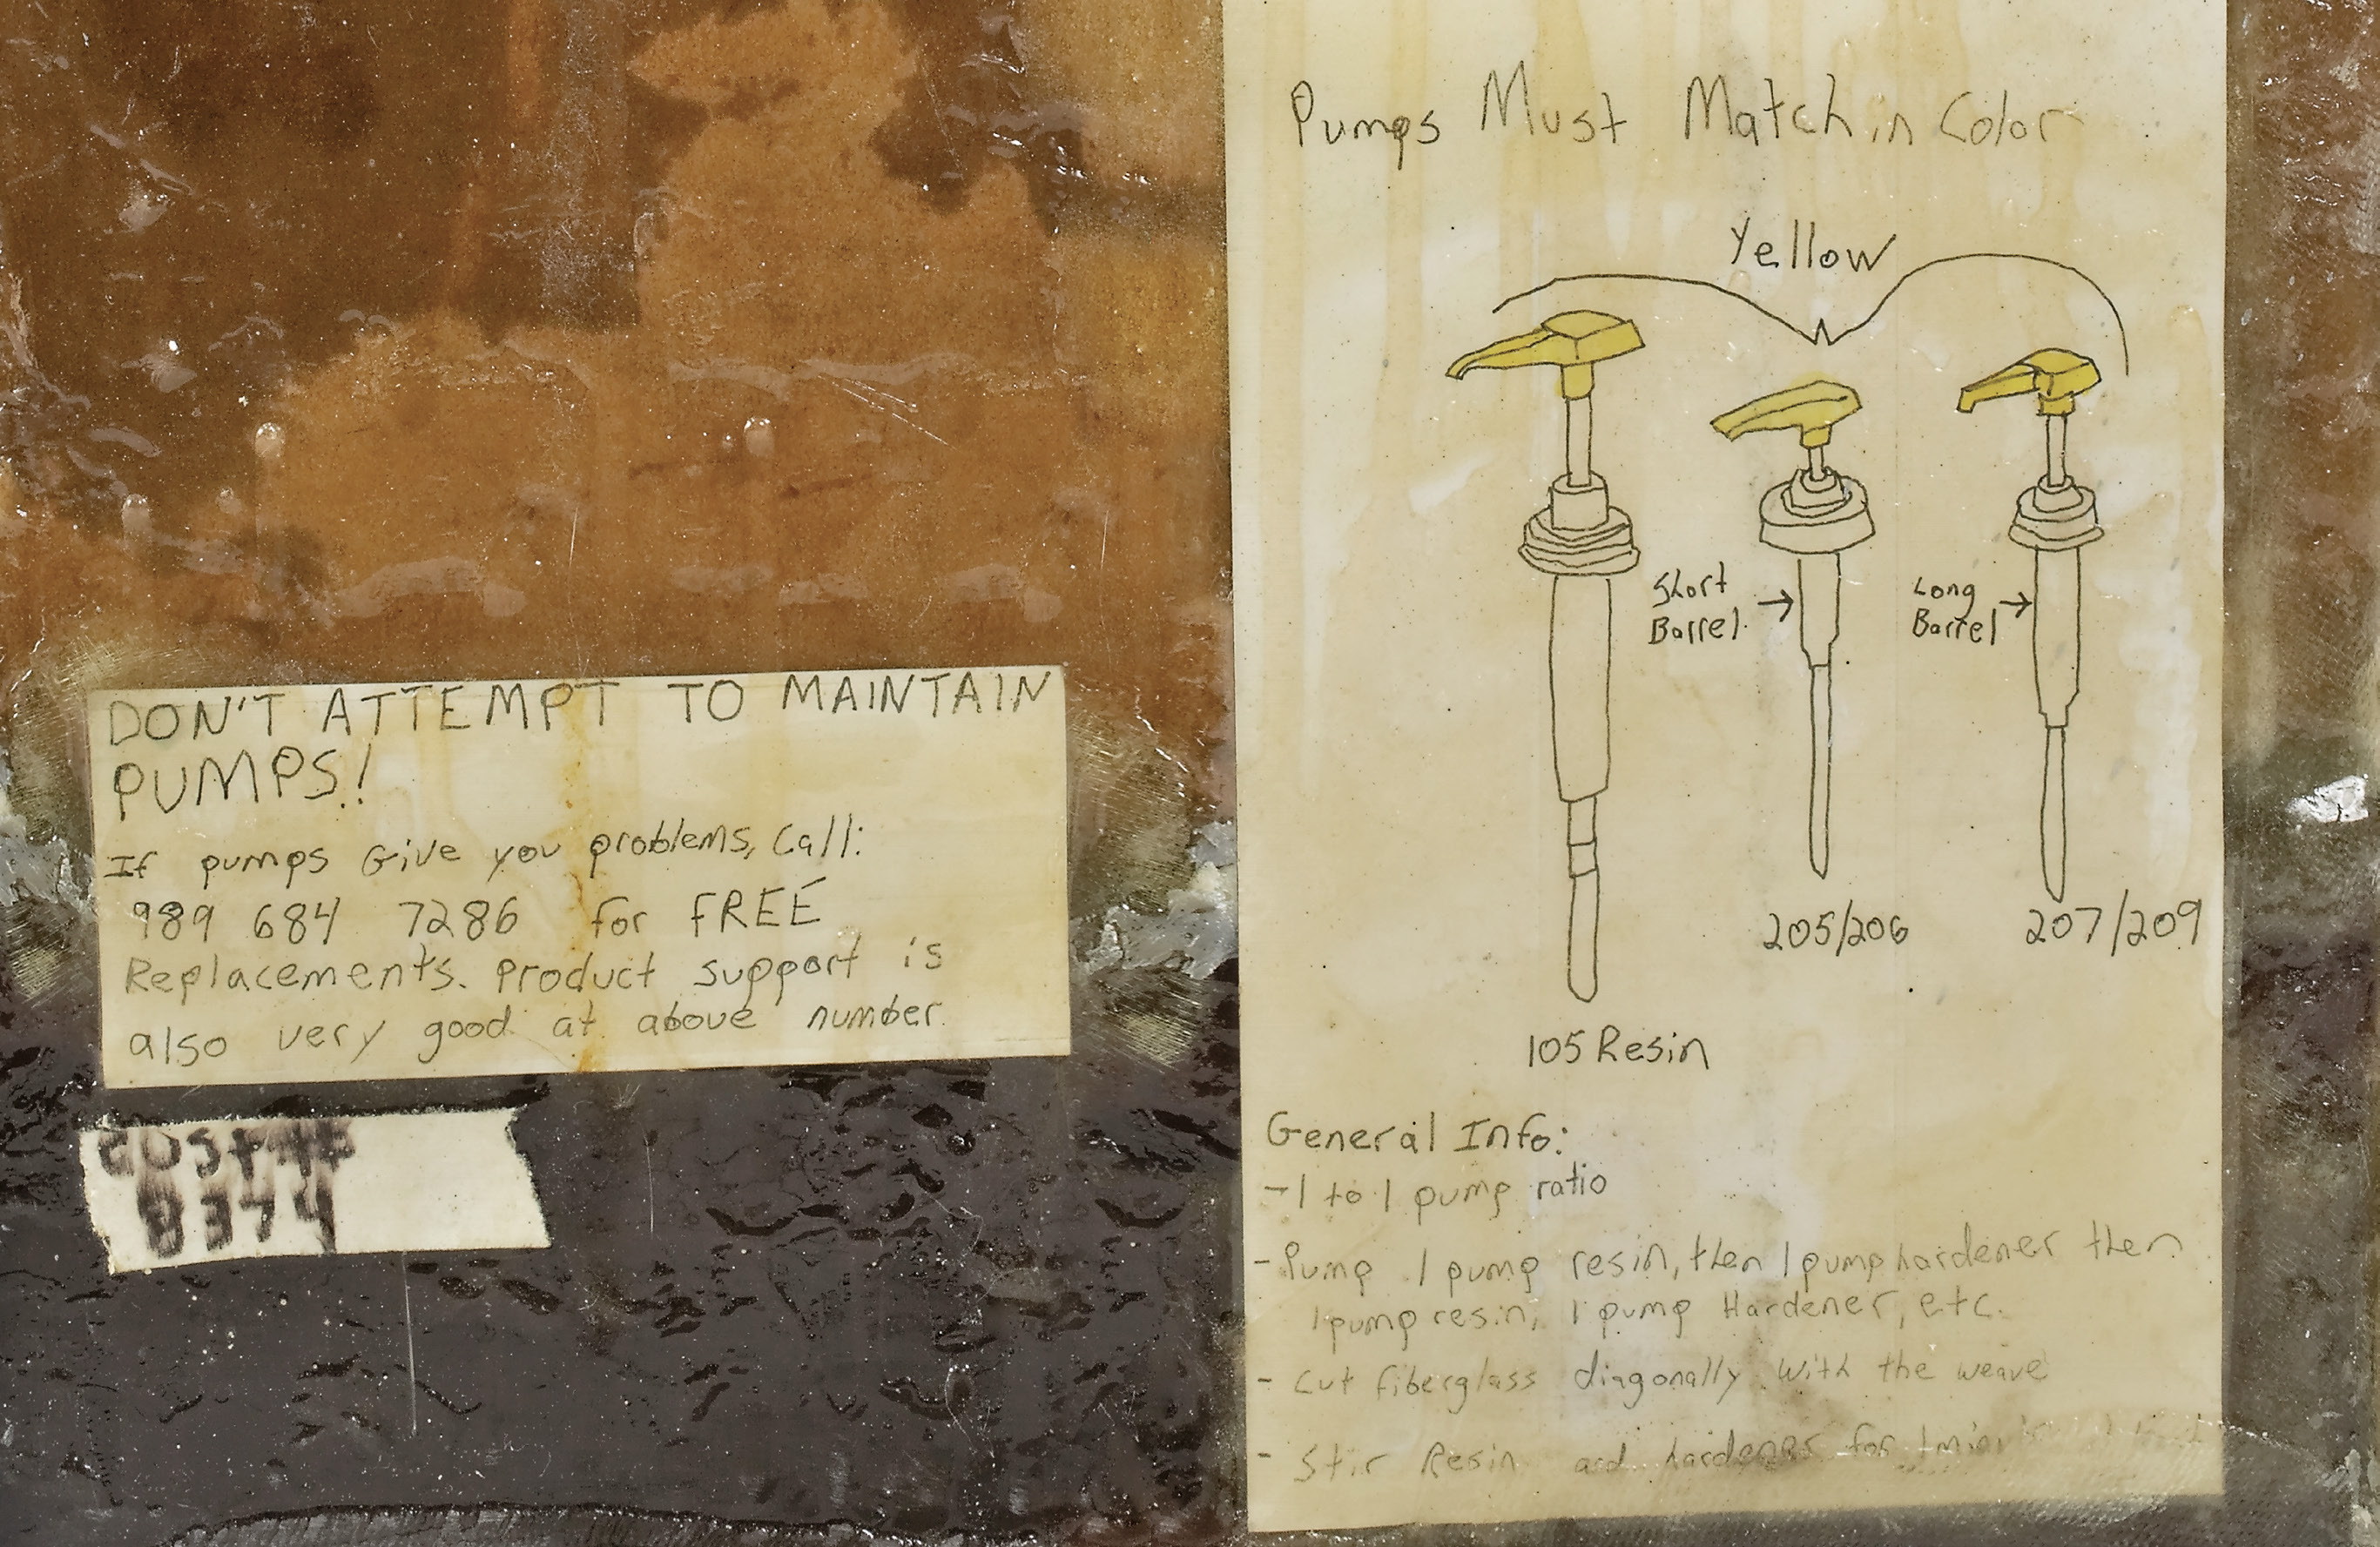 DON'T ATTEMPT TO MAINTAIN
PUMPS!
If pumps Give you problems, Call:
989 684 7286 for FREE
Replacements. Product support is
also very good at above number.
8374
Pumps Must Match in Color
Yellow
Short
Barrel
Long
Barrel
205/206
207/209
105 Resin
General Info:
-1 to 1 pump ratio
- Pump 1 pump resin, then 1 pump hardener then
1 pump resin, 1 pump Hardener, etc.
- Cut fiberglass diagonally with the weave
- Stir Resin and hardener for 1 min